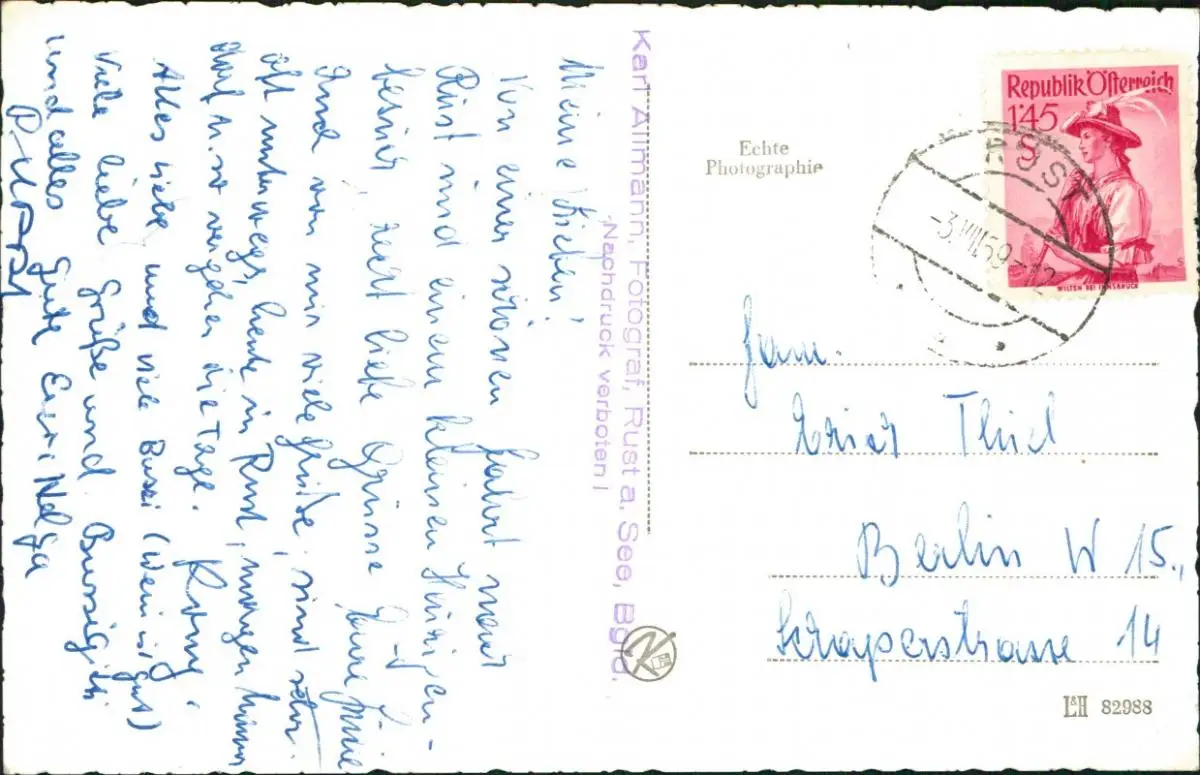 Meine Lieben!
Von einer schönen Fahrt nach
Rust und einem kleinen Heurigen-
besuch, recht liebe Grüsse
Auch von mir viele Grüße, sind sehr
oft unterwegs, heute in Rust, morgen
vergehen die Tage.
Alles Liebe und viele Bussi (Wein is gut)
Viele liebe Grüße und Bussi
und alles Gute Eure Helga
Karl Allmann, Fotograf, Rust a. See, Bgld.
Nachdruck verboten!
Echte
Photographie
Republik Österreich
1·45
S
WILTEN BEI INNSBRUCK
RUST
-3.VIII.59-12
Fam.
Erich Thiel
Berlin W 15.,
Schaperstrasse 14
L&H 82988